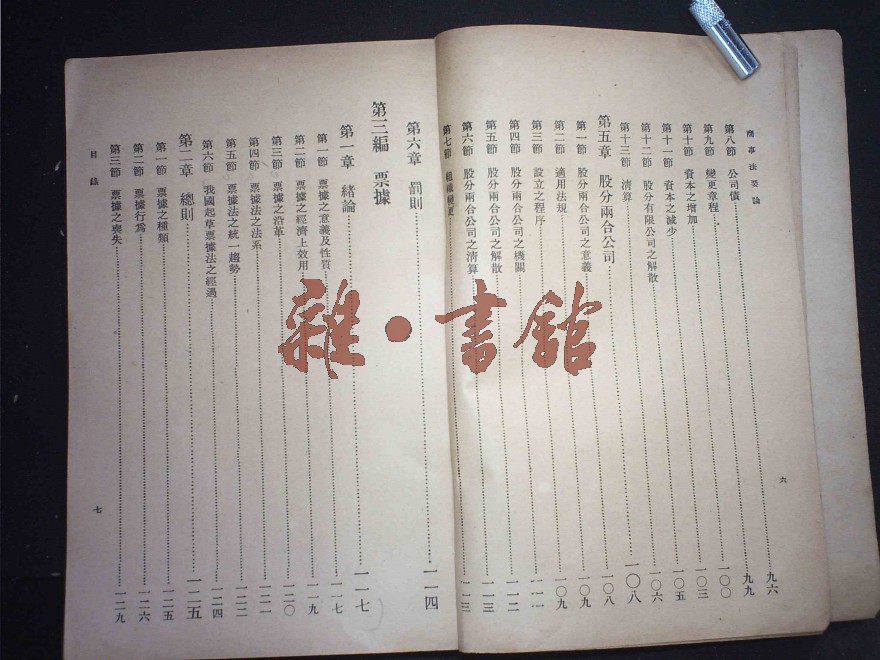 商事法要論
第八節 公司債……九六
第九節 變更章程……九九
第十節 資本之增加……一〇〇
第十一節 資本之減少……一〇三
第十二節 股分有限公司之解散……一〇五
第十三節 清算……一〇六
第五章 股分兩合公司……一〇八
第一節 股分兩合公司之意義……一〇八
第二節 適用法規……一〇九
第三節 設立之程序……一〇九
第四節 股分兩合公司之機關……一一一
第五節 股分兩合公司之解散……一一二
第六節 股分兩合公司之清算……一一三
第七節 組織變更……一一三
六
第六章 罰則……一一四
第三編 票據
第一章 緒論……一一七
第一節 票據之意義及性質……一一七
第二節 票據之經濟上效用……一一九
第三節 票據之沿革……一二〇
第四節 票據法之法系……一二一
第五節 票據法之統一趨勢……一二二
第六節 我國起草票據法之經過……一二四
第二章 總則……一二五
第一節 票據之種類……一二五
第二節 票據行爲……一二六
第三節 票據之喪失……一二九
目錄
七
雜·書館